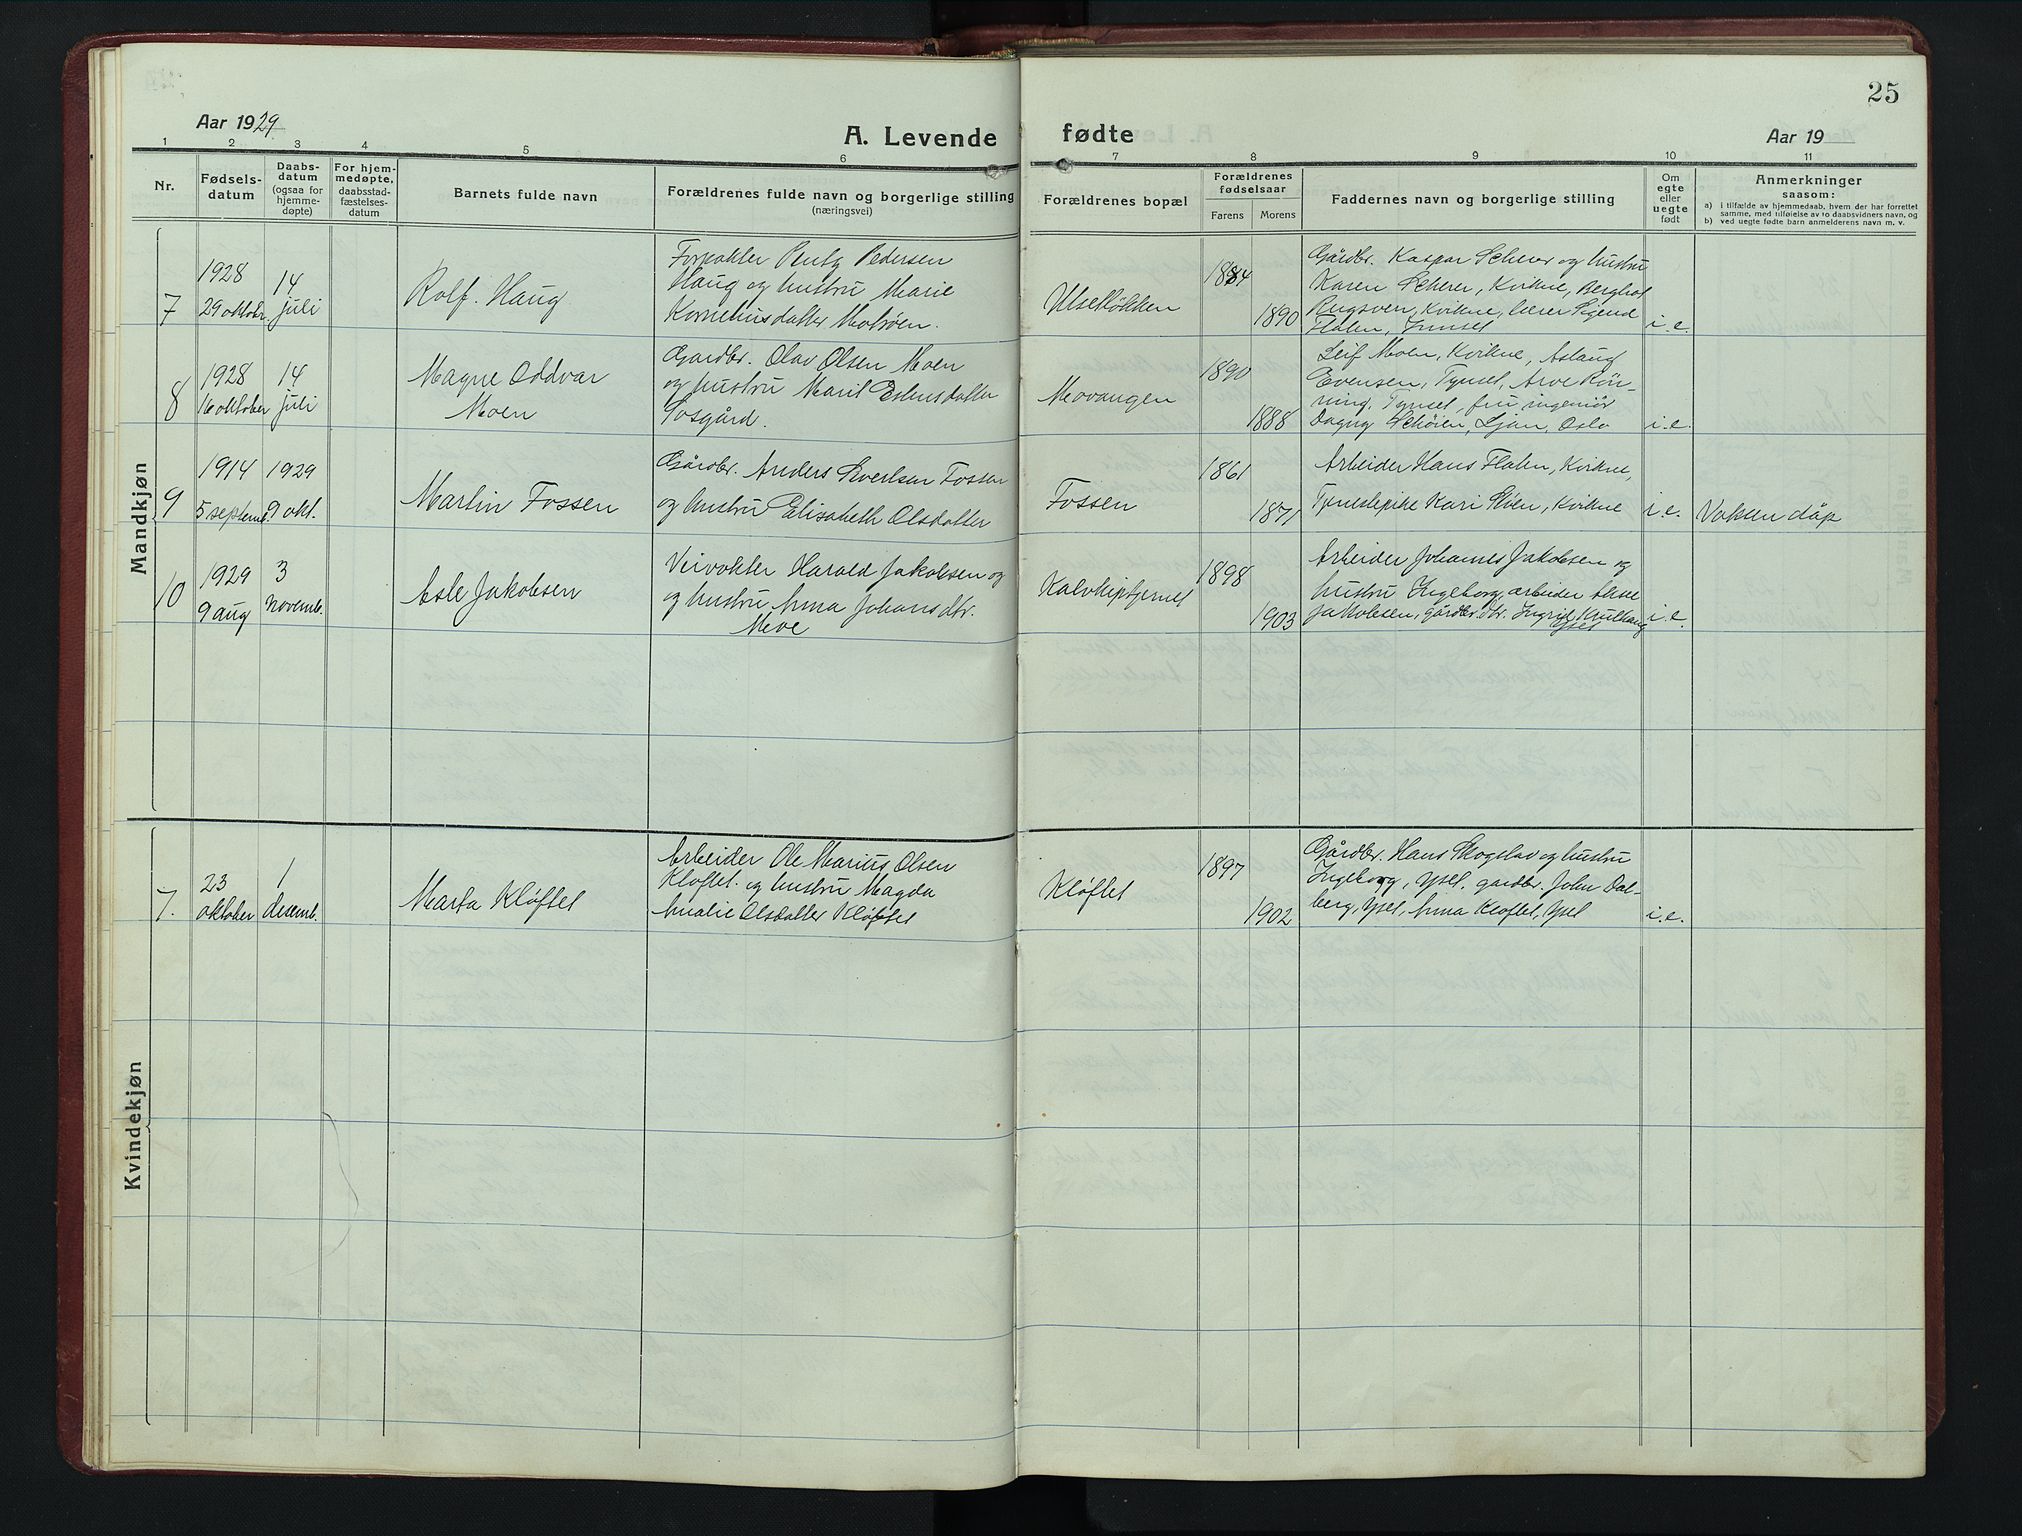 25
Aar 1929
A. Levende fødte
Aar 19
1 2 3 4 5 6 7 8 9 10 11
Nr.
Fødsels-
datum
Daabs-
datum
(ogsaa for
hjemme-
døpte)
For hjem-
medøpte,
daabsstad-
fæstelses-
datum
Barnets fulde navn
Forældrenes fulde navn og borgerlige stilling
(næringsvei)
Forældrenes bopæl
Forældrenes
fødselsaar
Farens Morens
Faddernes navn og borgerlige stilling
Om
egte
eller
uegte
født
Anmerkninger
saasom:
a) i tilfælde av hjemmedaab, hvem der har forrettet
samme, med tilføielse av to daabsvidners navn, og
b) ved uegte fødte barn anmelderens navn m. v.
Mandkjøn
7
1928
29 oktobr.
14
juli
Rolf Haug
Forpakter Pedersen
Haug og hustru Marie
Korneliusdatter Motrøen.
Ulseløkken
1884
1890
Gårdbr. Kaspar Scherer og hustru
Karen Scherer, Kvikne, Bergljot
Rugsveen, Kvikne, lærer Sigurd
Flaten, Innset
i.e.
8
1928
16 oktober
14
juli
Magne Oddvar
Moen
Gardbr. Olav Olsen Moen
og hustru Marit Estensdatter
Sosgård.
Movangen
1890
1888
Leif Moen, Kvikne, Aslaug
Evensen, Tynset, Arve Røn-
ning, Tynset, fru ingeniør
Dagny Schøien, Ljan, Oslo
i.e.
9
1914
5 septemb.
1929
9 okt.
Martin Fossen
Gårdbr. Anders Sivertsen Fossen
og hustru Elisabeth Olsdatter
Fossen
1861
1871
Arbeider Hans Flaten, Kvikne,
Tjenestepike Kari Støen, Kvikne
i.e.
Voksen dåp
10
1929
9 aug
3
novemb.
Asle Jakobsen
Veivokter Harald Jakobsen og
og hustru Anna Johansdtr.
Meve
1898
1903
Arbeider Johannes Jakobsen og
hustru Ingeborg, arbeider Aksel
Jakobsen, gårdbr. dtr. Ingrid
Yset
i.e.
Kvindekjøn
7.
23
oktober
1
desemb.
Marta Kløftet
Arbeider Ole Marius Olsen
Kløftet og hustru Magda
Amalie Olsdatter Kløftet
Kløftet
1897
1902
Gårdbr. Hans Skogstad og hustru
Ingeborg, Yset, gardbr. John Dal-
berg, Yset, Anna Kløftet, Yset
i.e.